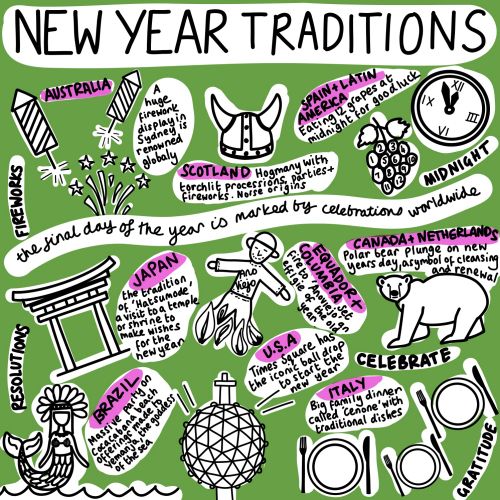 NEW YEAR TRADITIONS
AUSTRALIA
A
huge
firework
display in
Sydney is
renowned
globaly
SPAIN + LATIN
AMERICA
Eating 12 grapes at
midnight for good luck
XII
IX
III
VI
1 2 3
4 5 6
7 8 9 10
11 12
MIDNIGHT
FIREWORKS
SCOTLAND Hogmany with
torchlit processions, parties +
fireworks. Norse origins
the final day of the year is marked by celebrations worldwide
CANADA + NETHERLANDS
Polar bear plunge on new
years day, a symbol of cleansing
and renewal
JAPAN
the tradition
of 'Hatsumode'
a visit to a temple
or shrine to
make wishes
for the
new year
Ano
Viejo
EQUADOR +
COLUMBIA
Set
fire to
effigie
of the
year
CELEBRATE
RESOLUTIONS
U.S.A
Times Square has
the iconic ball drop
to start the
new year
BRAZIL
Massive party on
Beach
offerings made to
Yemanja, the goddess
of the sea
ITALY
Big family dinner
called 'cenone' with
traditional dishes
GRATITUDE